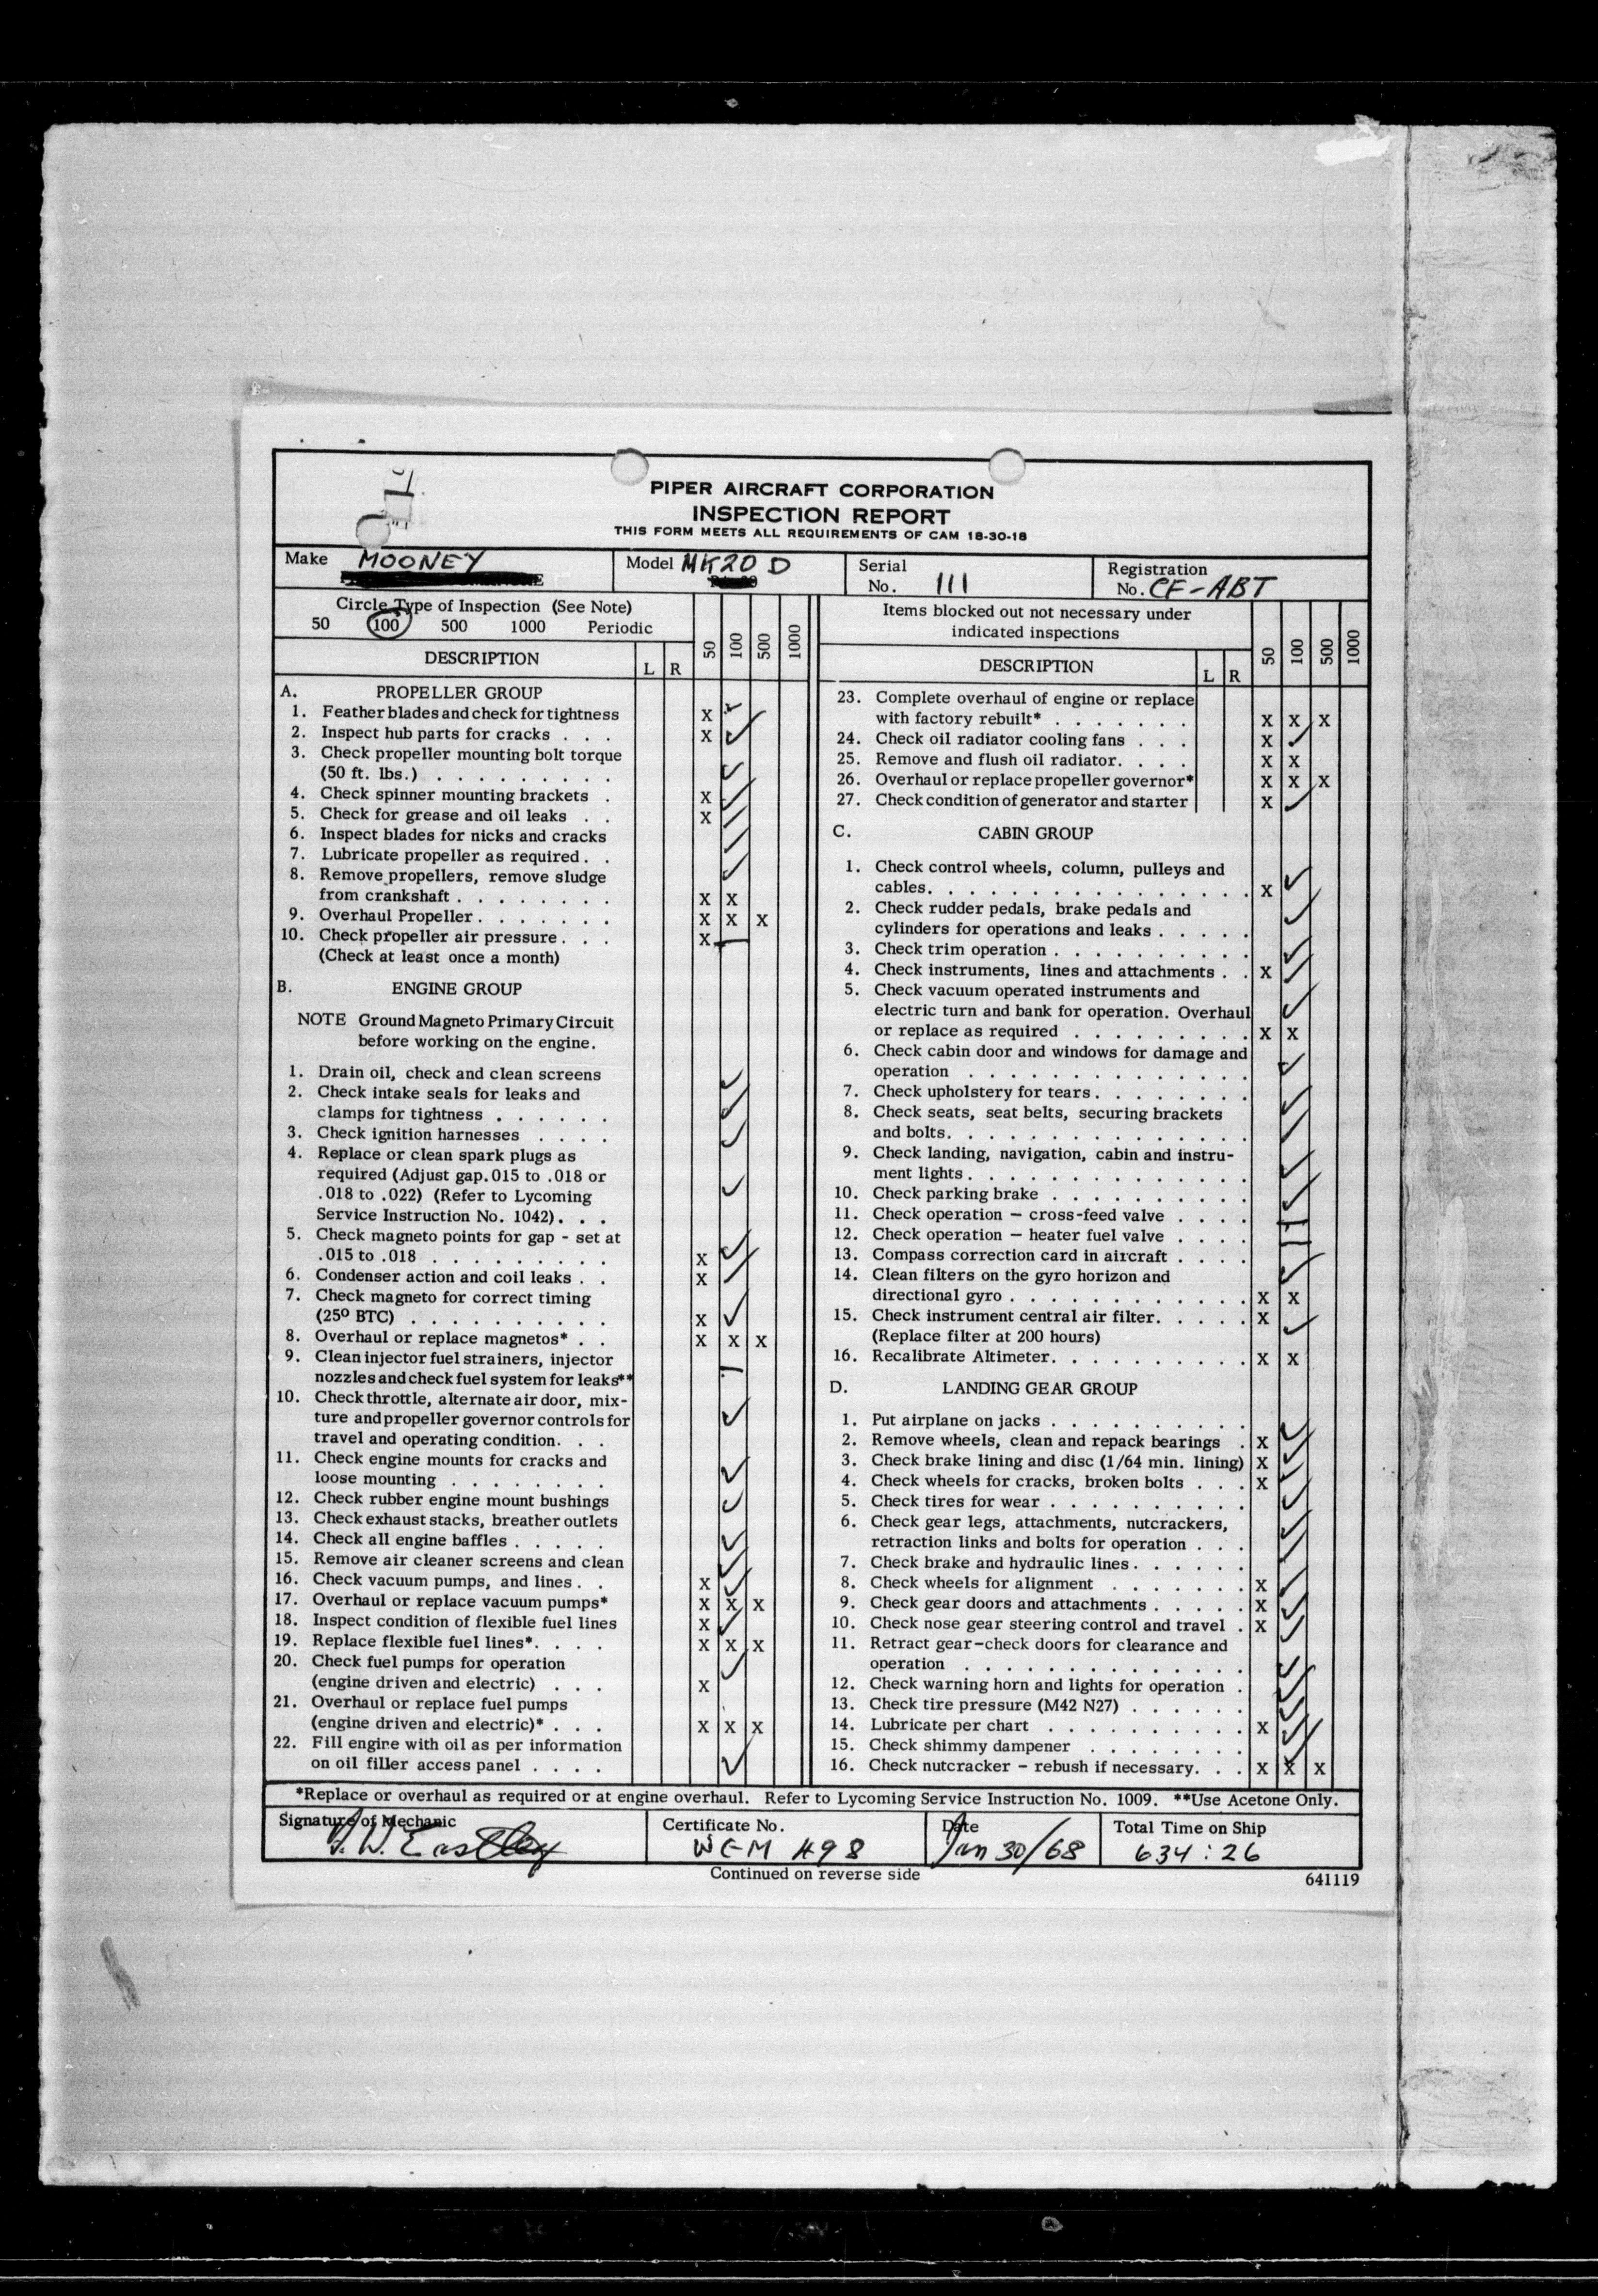 PIPER AIRCRAFT CORPORATION
INSPECTION REPORT
THIS FORM MEETS ALL REQUIREMENTS OF CAM 18-30-18
Make MOONEY
Model MK20 D
Serial No. 111
Registration No. CF-ABT
Circle Type of Inspection (See Note)
50 100 500 1000 Periodic
DESCRIPTION L R 50 100 500 1000
A. PROPELLER GROUP
1. Feather blades and check for tightness X
2. Inspect hub parts for cracks . . . X ✓
3. Check propeller mounting bolt torque
(50 ft. lbs.) . . . . . . . . . ✓
4. Check spinner mounting brackets . X ✓
5. Check for grease and oil leaks . . X ✓
6. Inspect blades for nicks and cracks ✓
7. Lubricate propeller as required . . ✓
8. Remove propellers, remove sludge
from crankshaft . . . . . . . . X X
9. Overhaul Propeller . . . . . . . X X X
10. Check propeller air pressure . . . X —
(Check at least once a month)
B. ENGINE GROUP
NOTE Ground Magneto Primary Circuit
before working on the engine.
1. Drain oil, check and clean screens ✓
2. Check intake seals for leaks and
clamps for tightness . . . . . . ✓
3. Check ignition harnesses . . . . ✓
4. Replace or clean spark plugs as
required (Adjust gap .015 to .018 or
.018 to .022) (Refer to Lycoming ✓
Service Instruction No. 1042) . . .
5. Check magneto points for gap - set at
.015 to .018 . . . . . . . . . X ✓
6. Condenser action and coil leaks . . X ✓
7. Check magneto for correct timing
(25º BTC) . . . . . . . . . . X ✓
8. Overhaul or replace magnetos* . . X X X
9. Clean injector fuel strainers, injector
nozzles and check fuel system for leaks** —
10. Check throttle, alternate air door, mix-
ture and propeller governor controls for ✓
travel and operating condition. . .
11. Check engine mounts for cracks and
loose mounting . . . . . . . . ✓
12. Check rubber engine mount bushings ✓
13. Check exhaust stacks, breather outlets ✓
14. Check all engine baffles . . . . . ✓
15. Remove air cleaner screens and clean ✓
16. Check vacuum pumps, and lines . . X ✓
17. Overhaul or replace vacuum pumps* X X X
18. Inspect condition of flexible fuel lines X ✓
19. Replace flexible fuel lines* . . . . X X X
20. Check fuel pumps for operation
(engine driven and electric) . . . X ✓
21. Overhaul or replace fuel pumps
(engine driven and electric)* . . . X X X
22. Fill engine with oil as per information
on oil filler access panel . . . . ✓
Items blocked out not necessary under
indicated inspections
DESCRIPTION L R 50 100 500 1000
23. Complete overhaul of engine or replace
with factory rebuilt* . . . . . . . X X X
24. Check oil radiator cooling fans . . . X ✓
25. Remove and flush oil radiator. . . . X X
26. Overhaul or replace propeller governor* X X X
27. Check condition of generator and starter X ✓
C. CABIN GROUP
1. Check control wheels, column, pulleys and
cables. . . . . . . . . . . . . . . . X ✓
2. Check rudder pedals, brake pedals and
cylinders for operations and leaks . . . . . ✓
3. Check trim operation . . . . . . . . . . ✓
4. Check instruments, lines and attachments . . X ✓
5. Check vacuum operated instruments and
electric turn and bank for operation. Overhaul ✓
or replace as required . . . . . . . . . X X
6. Check cabin door and windows for damage and
operation . . . . . . . . . . . . . . ✓
7. Check upholstery for tears . . . . . . . . ✓
8. Check seats, seat belts, securing brackets
and bolts. . . . . . . . . . . . . . . ✓
9. Check landing, navigation, cabin and instru-
ment lights . . . . . . . . . . . . . . ✓
10. Check parking brake . . . . . . . . . . ✓
11. Check operation — cross-feed valve . . . . —
12. Check operation — heater fuel valve . . . . —
13. Compass correction card in aircraft . . . . ✓
14. Clean filters on the gyro horizon and
directional gyro . . . . . . . . . . . . X X
15. Check instrument central air filter. . . . . X
(Replace filter at 200 hours) ✓
16. Recalibrate Altimeter. . . . . . . . . . X X
D. LANDING GEAR GROUP
1. Put airplane on jacks . . . . . . . . . . ✓
2. Remove wheels, clean and repack bearings . X ✓
3. Check brake lining and disc (1/64 min. lining) X ✓
4. Check wheels for cracks, broken bolts . . . X ✓
5. Check tires for wear . . . . . . . . . . ✓
6. Check gear legs, attachments, nutcrackers,
retraction links and bolts for operation . . . ✓
7. Check brake and hydraulic lines . . . . . . ✓
8. Check wheels for alignment . . . . . . . X ✓
9. Check gear doors and attachments . . . . . X ✓
10. Check nose gear steering control and travel . X ✓
11. Retract gear—check doors for clearance and
operation . . . . . . . . . . . . . . ✓
12. Check warning horn and lights for operation . ✓
13. Check tire pressure (M42 N27) . . . . . . ✓
14. Lubricate per chart . . . . . . . . . . X ✓
15. Check shimmy dampener . . . . . . . . ✓
16. Check nutcracker — rebush if necessary. . . X X X
*Replace or overhaul as required or at engine overhaul. Refer to Lycoming Service Instruction No. 1009. **Use Acetone Only.
Signature of Mechanic W. Eastley
Certificate No. WEM 498
Date Jan 30/68
Total Time on Ship 634:26
Continued on reverse side
641119